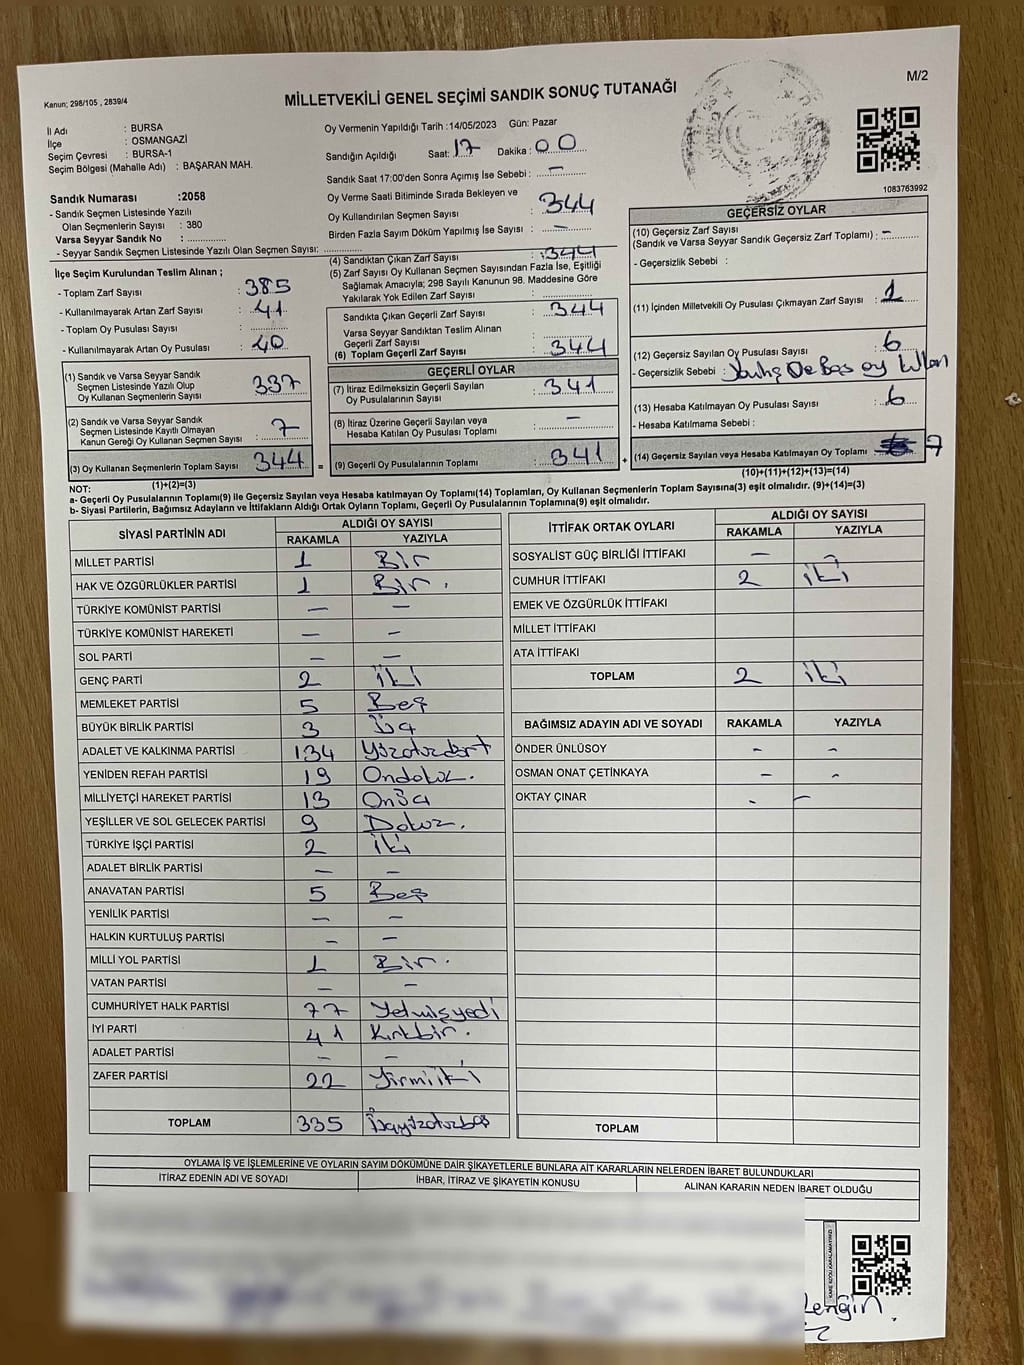 Kanun; 298/105 , 2839/4
M/2
MİLLETVEKİLİ GENEL SEÇİMİ SANDIK SONUÇ TUTANAĞI
İl Adı : BURSA
İlçe : OSMANGAZİ
Seçim Çevresi : BURSA-1
Seçim Bölgesi (Mahalle Adı) : BAŞARAN MAH.
Sandık Numarası :2058
- Sandık Seçmen Listesinde Yazılı
Olan Seçmenlerin Sayısı : 380
Varsa Seyyar Sandık No :
- Seyyar Sandık Seçmen Listesinde Yazılı Olan Seçmen Sayısı:
Oy Vermenin Yapıldığı Tarih :14/05/2023 Gün: Pazar
Sandığın Açıldığı Saat: 17 Dakika : 00
Sandık Saat 17:00'den Sonra Açımış İse Sebebi : —
Oy Verme Saati Bitiminde Sırada Bekleyen ve
Oy Kullandırılan Seçmen Sayısı : 344
Birden Fazla Sayım Döküm Yapılmış İse Sayısı : —
1083763992
İlçe Seçim Kurulundan Teslim Alınan ;
- Toplam Zarf Sayısı : 385
- Kullanılmayarak Artan Zarf Sayısı : 41
- Toplam Oy Pusulası Sayısı :
- Kullanılmayarak Artan Oy Pusulası : 40
(1) Sandık ve Varsa Seyyar Sandık
Seçmen Listesinde Yazılı Olup
Oy Kullanan Seçmenlerin Sayısı : 337
(2) Sandık ve Varsa Seyyar Sandık
Seçmen Listesinde Kayıtlı Olmayan
Kanun Gereği Oy Kullanan Seçmen Sayısı : 7
(3) Oy Kullanan Seçmenlerin Toplam Sayısı : 344 =
(1)+(2)=(3)
(4) Sandıktan Çıkan Zarf Sayısı : 344
(5) Zarf Sayısı Oy Kullanan Seçmen Sayısından Fazla İse, Eşitliği
Sağlamak Amacıyla; 298 Sayılı Kanunun 98. Maddesine Göre
Yakılarak Yok Edilen Zarf Sayısı :
Sandıkta Çıkan Geçerli Zarf Sayısı : 344
Varsa Seyyar Sandıktan Teslim Alınan
Geçerli Zarf Sayısı :
(6) Toplam Geçerli Zarf Sayısı : 344
GEÇERLİ OYLAR
(7) İtiraz Edilmeksizin Geçerli Sayılan
Oy Pusulalarının Sayısı : 341
(8) İtiraz Üzerine Geçerli Sayılan veya
Hesaba Katılan Oy Pusulası Toplamı : —
(9) Geçerli Oy Pusulalarının Toplamı : 341 +
GEÇERSİZ OYLAR
(10) Geçersiz Zarf Sayısı
(Sandık ve Varsa Seyyar Sandık Geçersiz Zarf Toplamı) : -
- Geçersizlik Sebebi :
(11) İçinden Milletvekili Oy Pusulası Çıkmayan Zarf Sayısı : 1
(12) Geçersiz Sayılan Oy Pusulası Sayısı : 6
- Geçersizlik Sebebi :
(13) Hesaba Katılmayan Oy Pusulası Sayısı : 6
- Hesaba Katılmama Sebebi :
(14) Geçersiz Sayılan veya Hesaba Katılmayan Oy Toplamı : 7
(10)+(11)+(12)+(13)=(14)
NOT:
a- Geçerli Oy Pusulalarının Toplamı(9) ile Geçersiz Sayılan veya Hesaba katılmayan Oy Toplamı(14) Toplamları, Oy Kullanan Seçmenlerin Toplam Sayısına(3) eşit olmalıdır. (9)+(14)=(3)
b- Siyasi Partilerin, Bağımsız Adayların ve İttifakların Aldığı Ortak Oyların Toplamı, Geçerli Oy Pusulalarının Toplamına(9) eşit olmalıdır.
SİYASİ PARTİNİN ADI ALDIĞI OY SAYISI
RAKAMLA YAZIYLA
MİLLET PARTİSİ 1 Bir
HAK VE ÖZGÜRLÜKLER PARTİSİ 1 Bir.
TÜRKİYE KOMÜNİST PARTİSİ — —
TÜRKİYE KOMÜNİST HAREKETİ — —
SOL PARTİ — —
GENÇ PARTİ 2 iki
MEMLEKET PARTİSİ 5 Beş
BÜYÜK BİRLİK PARTİSİ 3 Üç
ADALET VE KALKINMA PARTİSİ 134 Yüzotuzdört
YENİDEN REFAH PARTİSİ 19 Ondokuz.
MİLLİYETÇİ HAREKET PARTİSİ 13 Onüç
YEŞİLLER VE SOL GELECEK PARTİSİ 9 Dokuz.
TÜRKİYE İŞÇİ PARTİSİ 2 iki
ADALET BİRLİK PARTİSİ — —
ANAVATAN PARTİSİ 5 Beş
YENİLİK PARTİSİ — —
HALKIN KURTULUŞ PARTİSİ — —
MİLLİ YOL PARTİSİ 1 Bir.
VATAN PARTİSİ — —
CUMHURİYET HALK PARTİSİ 77 Yetmişyedi
İYİ PARTİ 41 Kırkbir.
ADALET PARTİSİ — —
ZAFER PARTİSİ 22 Yirmiiki
TOPLAM 335 Üçyüzotuzbeş
İTTİFAK ORTAK OYLARI ALDIĞI OY SAYISI
RAKAMLA YAZIYLA
SOSYALİST GÜÇ BİRLİĞİ İTTİFAKI —
CUMHUR İTTİFAKI 2 iki
EMEK VE ÖZGÜRLÜK İTTİFAKI
MİLLET İTTİFAKI
ATA İTTİFAKI
TOPLAM 2 iki
BAĞIMSIZ ADAYIN ADI VE SOYADI RAKAMLA YAZIYLA
ÖNDER ÜNLÜSOY - -
OSMAN ONAT ÇETİNKAYA - -
OKTAY ÇINAR - -
TOPLAM
OYLAMA İŞ VE İŞLEMLERİNE VE OYLARIN SAYIM DÖKÜMÜNE DAİR ŞİKAYETLERLE BUNLARA AİT KARARLARIN NELERDEN İBARET BULUNDUKLARI
İTİRAZ EDENİN ADI VE SOYADI İHBAR, İTİRAZ VE ŞİKAYETİN KONUSU ALINAN KARARIN NEDEN İBARET OLDUĞU
KARE KODU KARALAMAYINIZ!